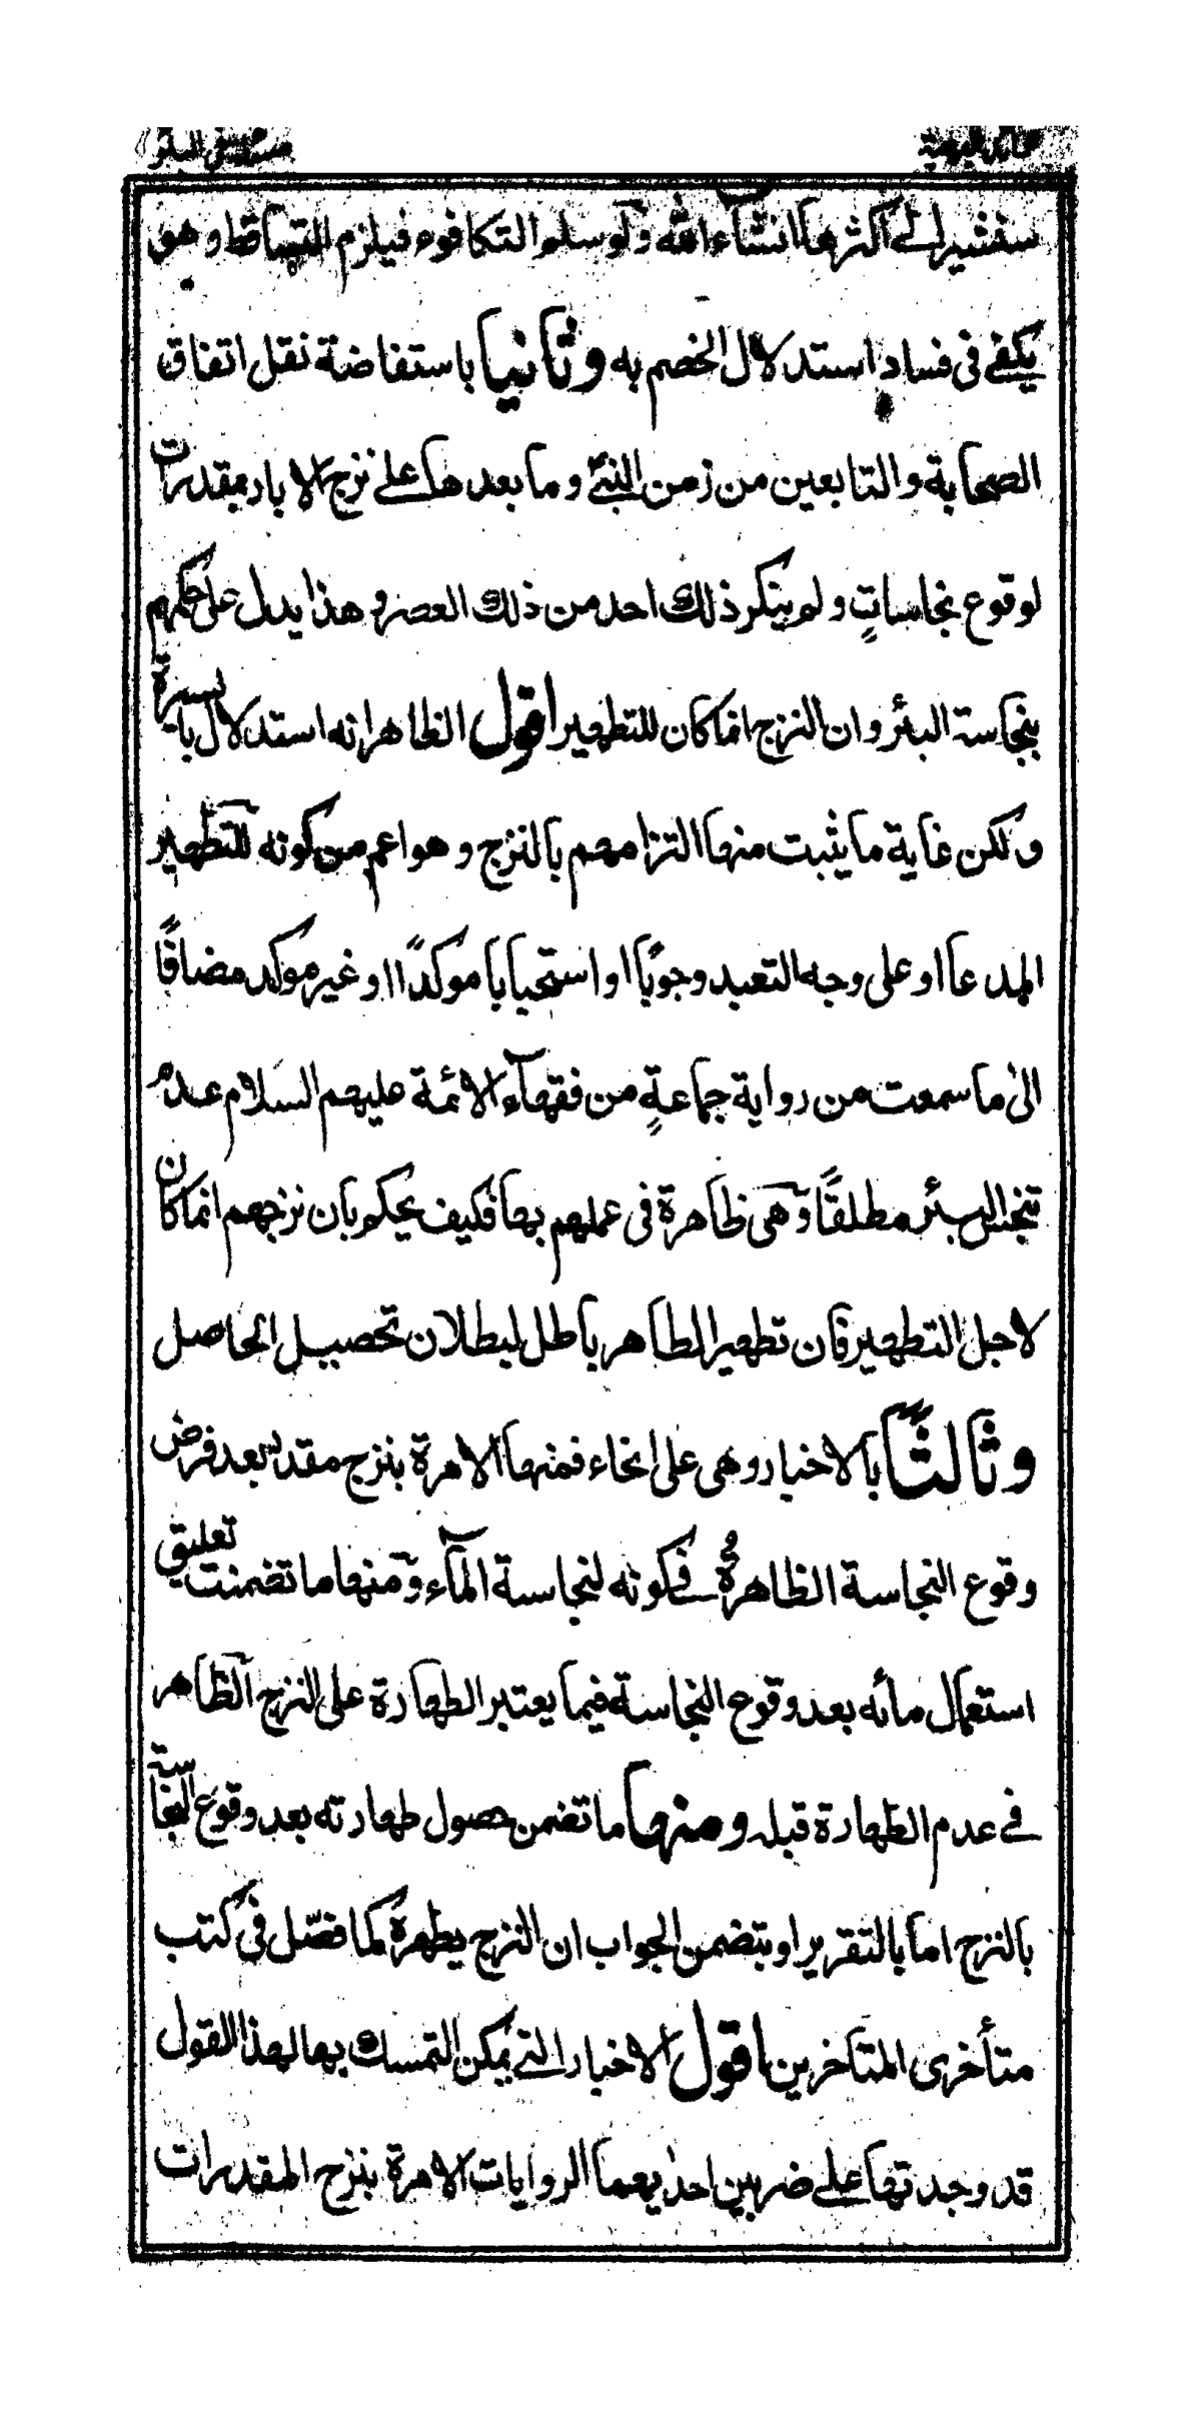 سنشير الى اكثرها انشاء الله ولو سلم التكافوء فيلزم التساقط وهو
يكفي في فساد استدلال الخصم به وثانيا باستفاضة نقل اتفاق
الصحابة والتابعين من زمن النبي وما بعدها على نزح الابار بمقدرات
لوقوع نجاساتٍ ولم ينكر ذلك احد من ذلك العصر وهذا يدل على حكمهم
بنجاسة البئر وان النزح انما كان للتطهير اقول الظاهر انه استدلال بالسيرة
ولكن غاية ما يثبت منها التزامهم بالنزح وهو اعم من كونه للتطهير
المدعا او على وجه التعبد وجوبًا او استحبابا موكدًا او غير موكد مضافًا
الى ما سمعت من رواية جماعةٍ من فقهآء الائمة عليهم السلام عدم
تنجس البئر مطلقًا وهي ظاهرة في عملهم بها فكيف يحكم بان نزحهم انما كان
لاجل التطهير فان تطهير الطاهر باطل لبطلان تحصيل الحاصل
وثالثًا بالاخبار وهي على انحاء فمنها الامرة بنزح مقدر بعد فرض
وقوع النجاسة الظاهرة في كونه لنجاسة المآء ومنها ما تضمنت تعليق
استعمال مائه بعد وقوع النجاسة فيما يعتبر الطهارة على النزح الظاهر
في عدم الطهارة قبله ومنها ما تضمن حصول طهارته بعد وقوع النجاسة
بالنزح اما بالتقرير او بتضمن الجواب ان النزح يطهره كما فصّل في كتب
متأخري المتأخرين اقول الاخبار التي يمكن التمسك بها لهذا القول
قد وجدتها على ضربين احديهما الروايات الامرة بنزح المقدرات